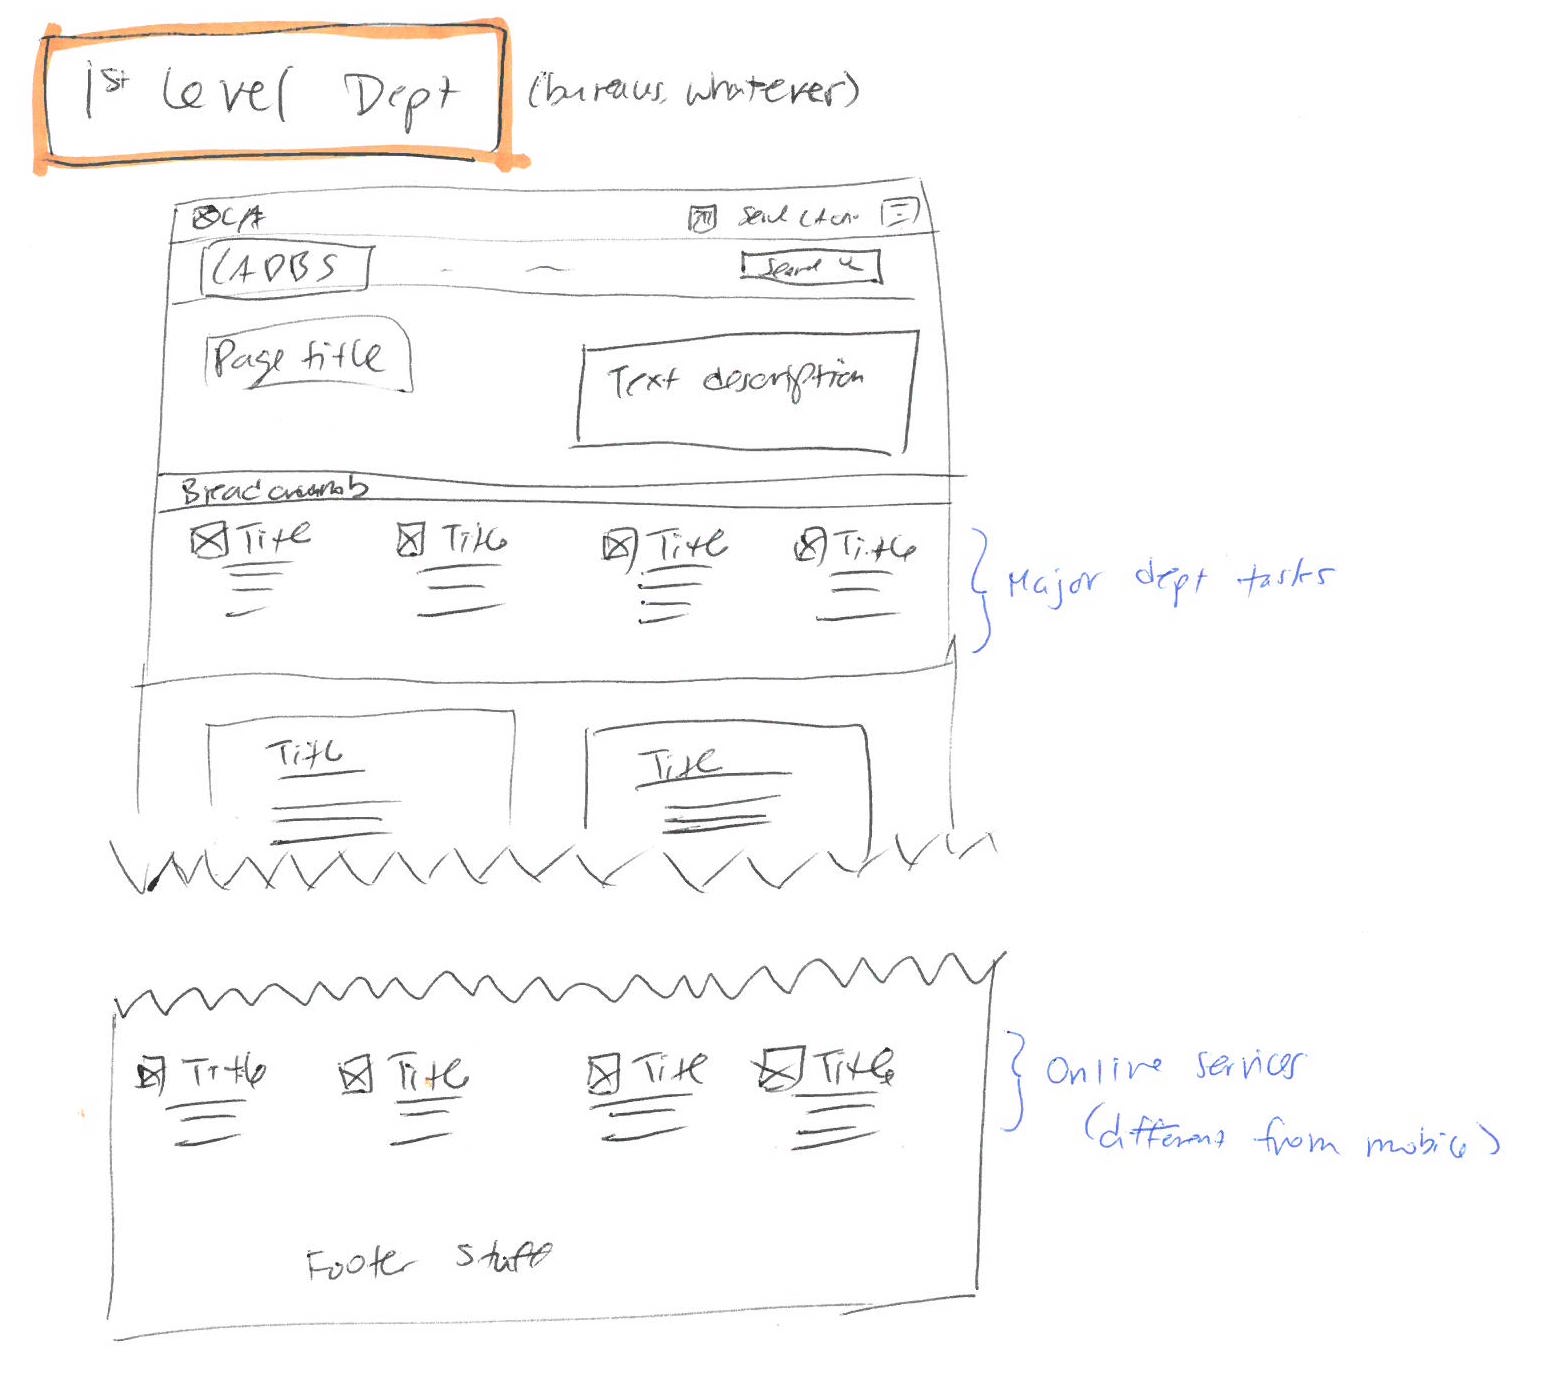 1st Level Dept
(bureaus, whatever)
CA
CADBS
Search
Page title
Text description
Breadcrumb
Title Title Title Title
Major dept tasks
Title Title
Title Title Title Title
Online services
(different from mobile)
Footer stuff